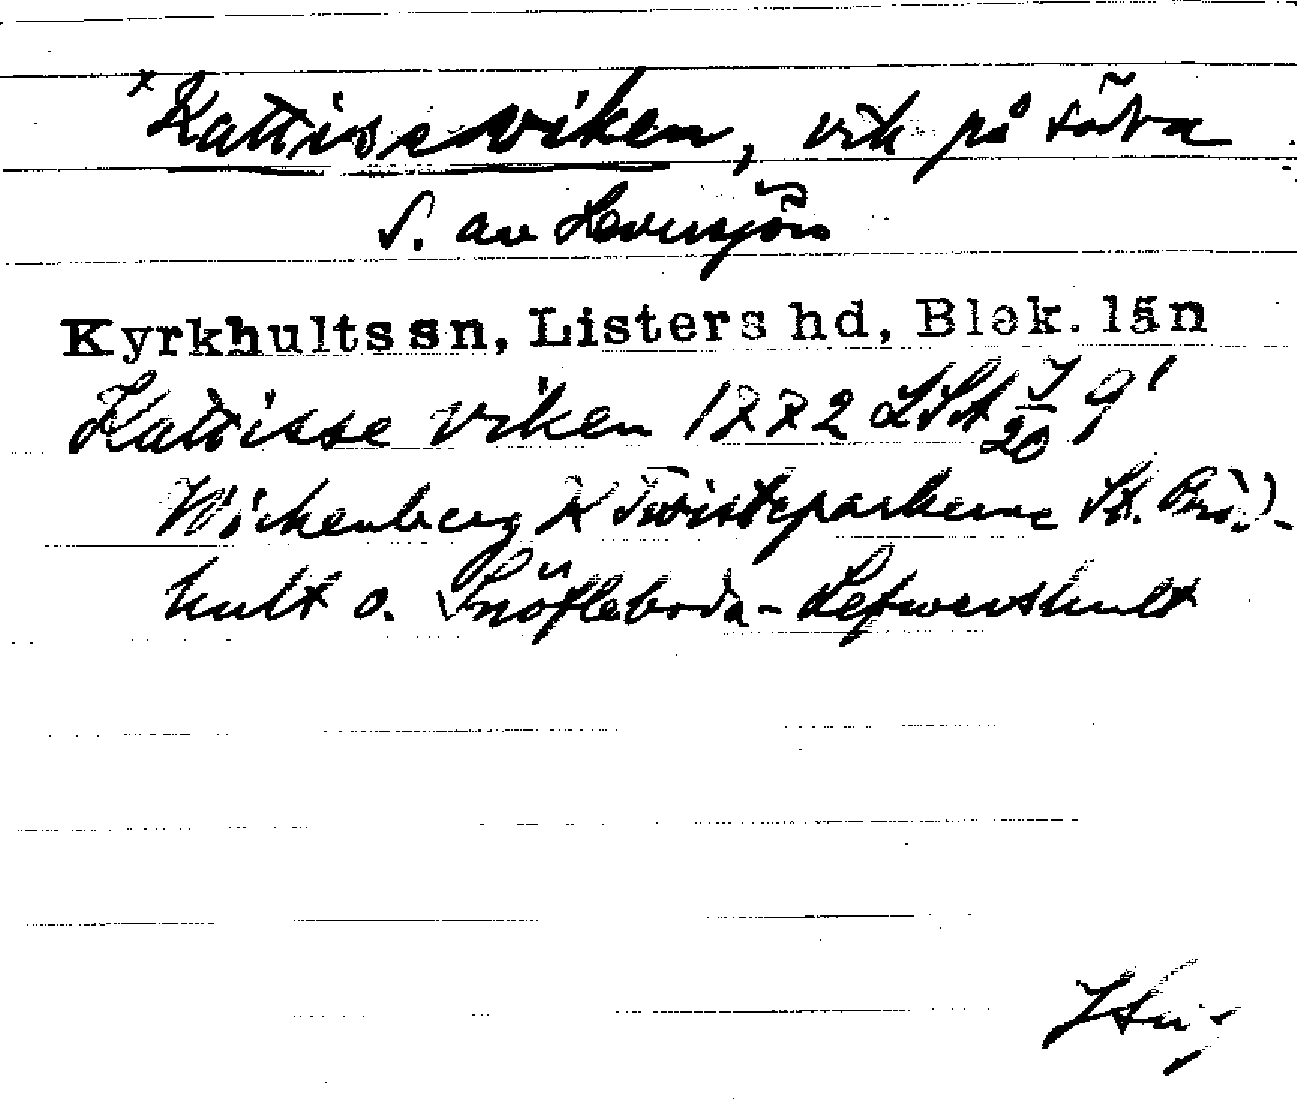 x Kattisseviken, vik på södra
S. av Levrasjön
Kyrkhults sn, Listers hd, Blek. län
Kattisse viken 1772 LSA 7/20 9¹
Wickenberg K Twisteparkerne St.
hult o. Snöfleboda - Lefwershult